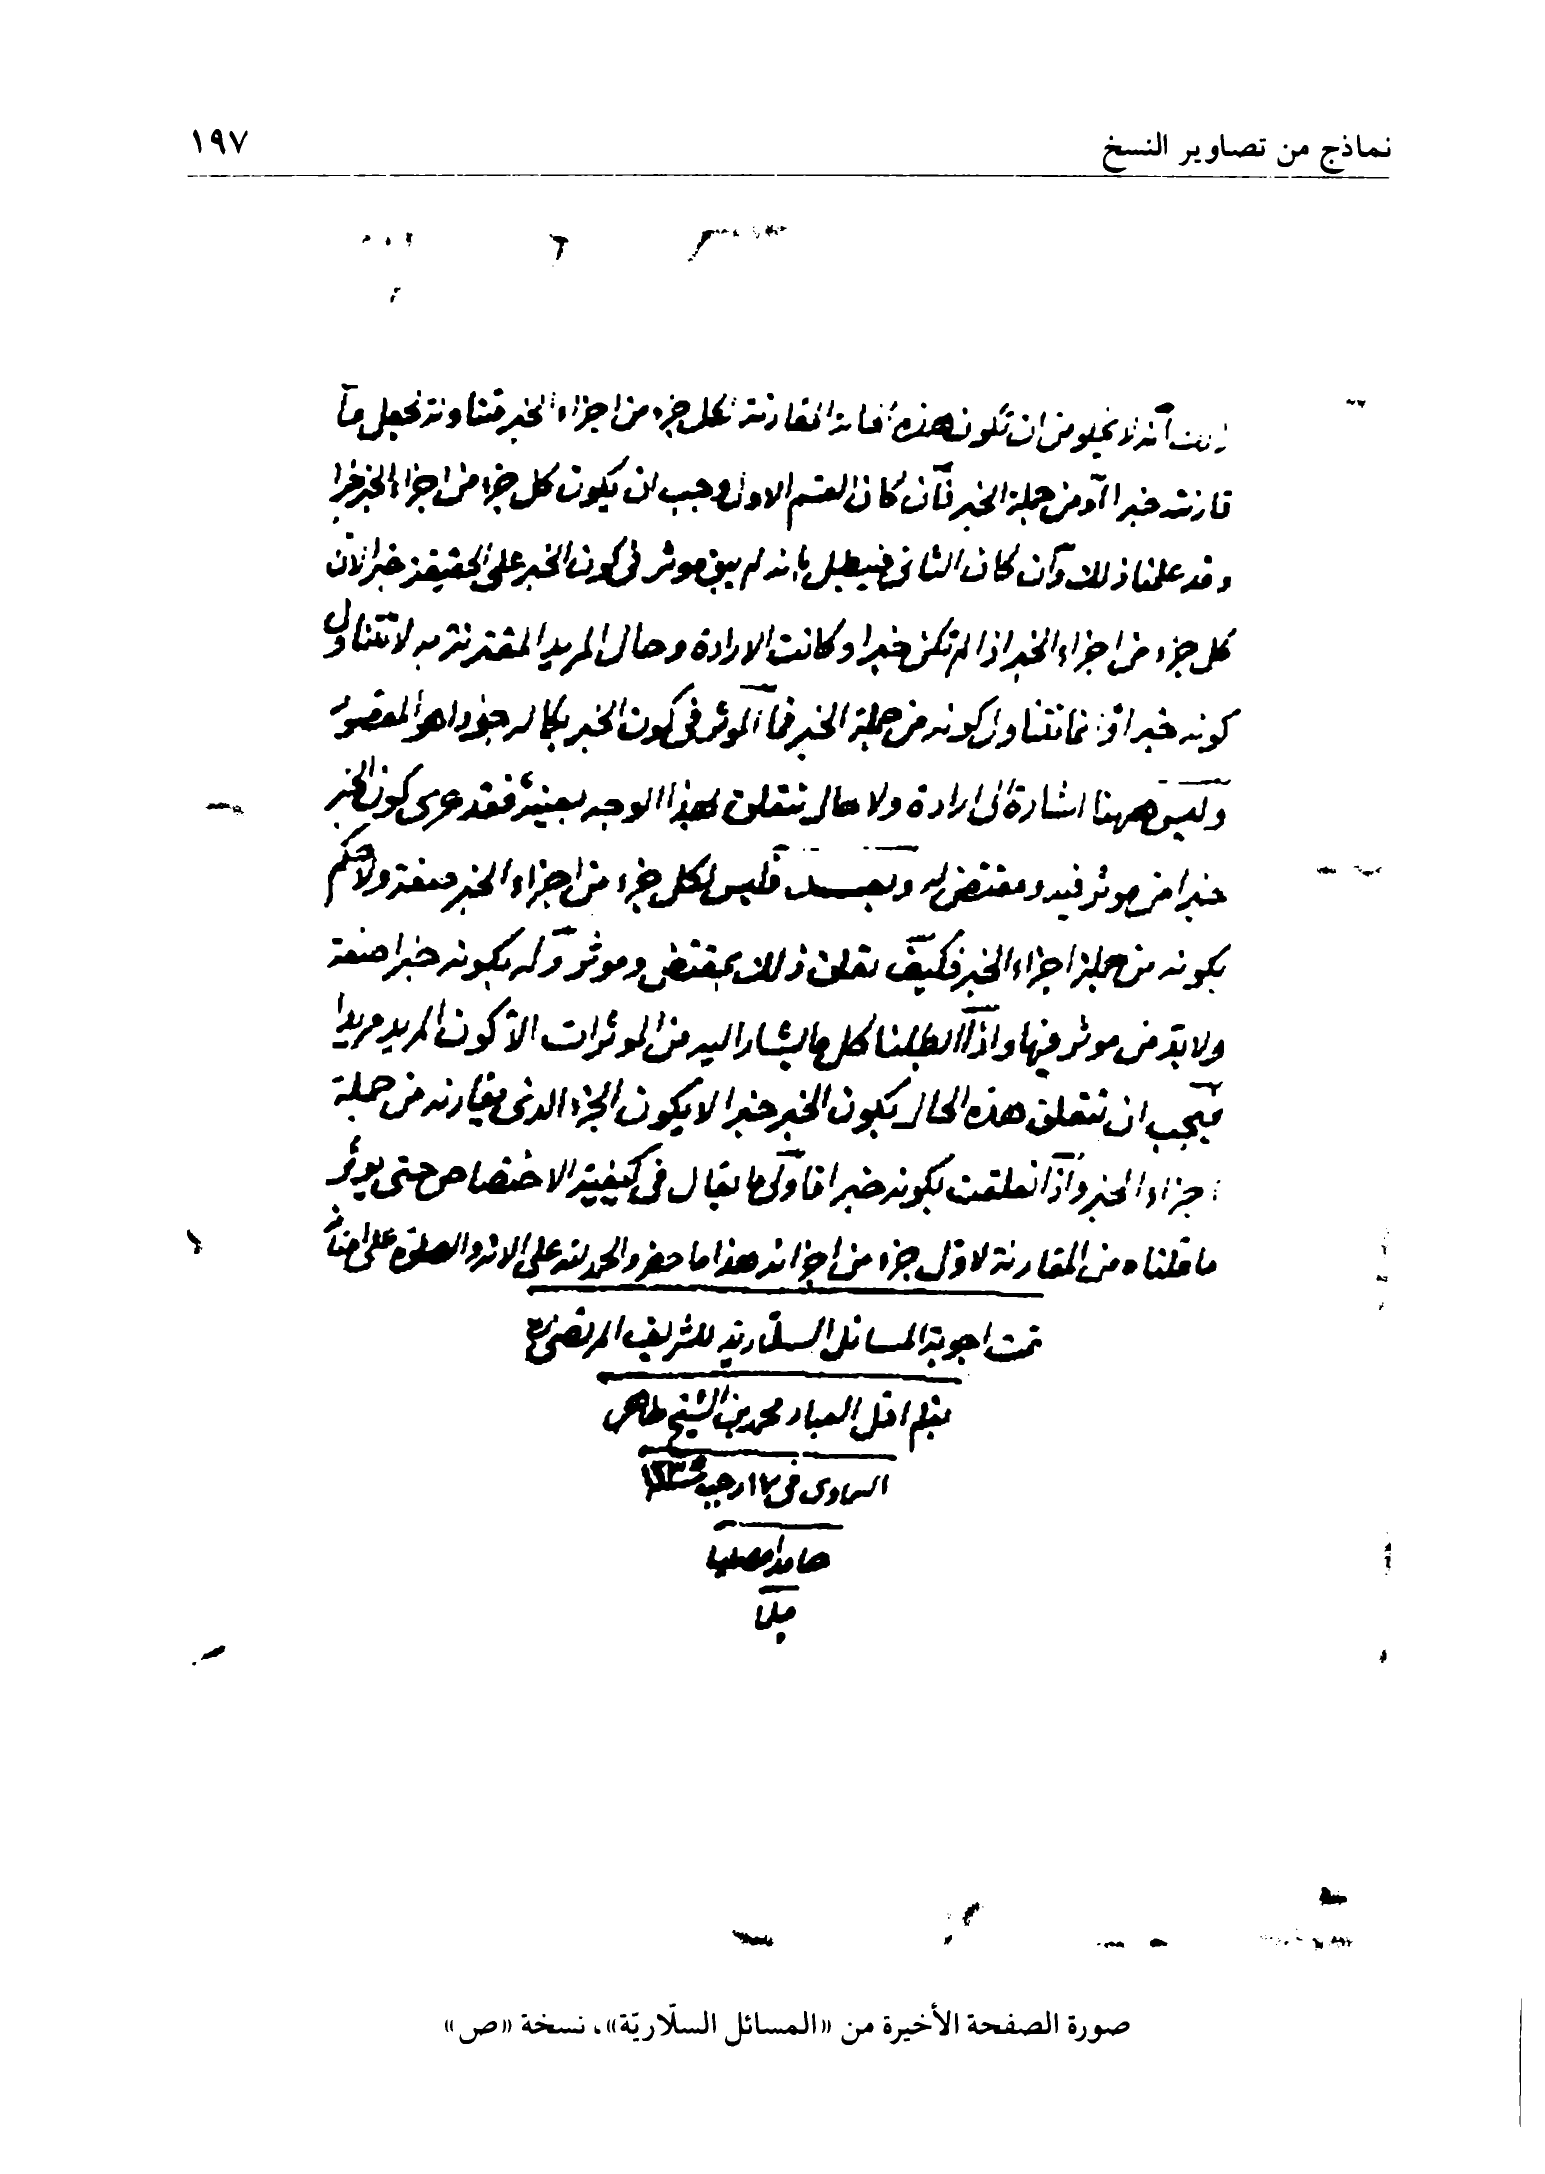 نماذج من تصاوير النسخ
١٩٧
ذلك أنه لا يخلو من ان تكون هذه المقارنة لكل جزء من اجزاء الخبر متناولة لجعل ما
قارنته خبرا أو من جملة الخبر فان كان القسم الاول وجب ان يكون كل جزء من اجزاء الخبر خبرا
وقد علمنا ذلك وان كان الثانى فيبطل بانه لم يبق موثر فى كون الخبر على الحقيقة خبرا لان
كل جزء من اجزاء الخبر اذا لم تكن خبرا وكانت الارادة وحال المريد المقترنة به لا تتناول
كونه خبرا وانما تتناول كونه من جملة الخبر فما الموثر فى كون الخبر بكماله خبرا وهو المقصود
وليس ههنا اشارة الى ارادة ولا حال تتعلق بهذا الوجه بعينه فقد عرى كون الخبر
خبرا من موثر فيه ومقتض له وبعد فليس لكل جزء من اجزاء الخبر صفة ولا حكم
بكونه من جملة اجزاء الخبر فكيف تعلق ذلك بمقتض وموثر وله بكونه خبرا صفة
ولا بد من موثر فيها واذا ابطلنا كل ما يشار اليه من الموثرات الا كون المريد مريدا
فيجب ان تتعلق هذه الحال بكون الخبر خبرا لا بكون الجزء الذى يقارنه من جملة
اجزاء الخبر واذا تعلقت بكونه خبرا فاولى ما يقال فى كيفية الاختصاص حتى يوثر
ما قلناه من المقارنة لاول جزء من اجزائه هذا ما حضر والحمد لله على الائه والصلوة على امنائه
تمت اجوبة المسائل السلارية للشريف المرتضى
بقلم اقل العباد محمد بن الشيخ طاهر
السماوى فى ١٧ رجب
حامدا مصليا
صورة الصفحة الأخيرة من «المسائل السلّاريّة»، نسخة «ص»